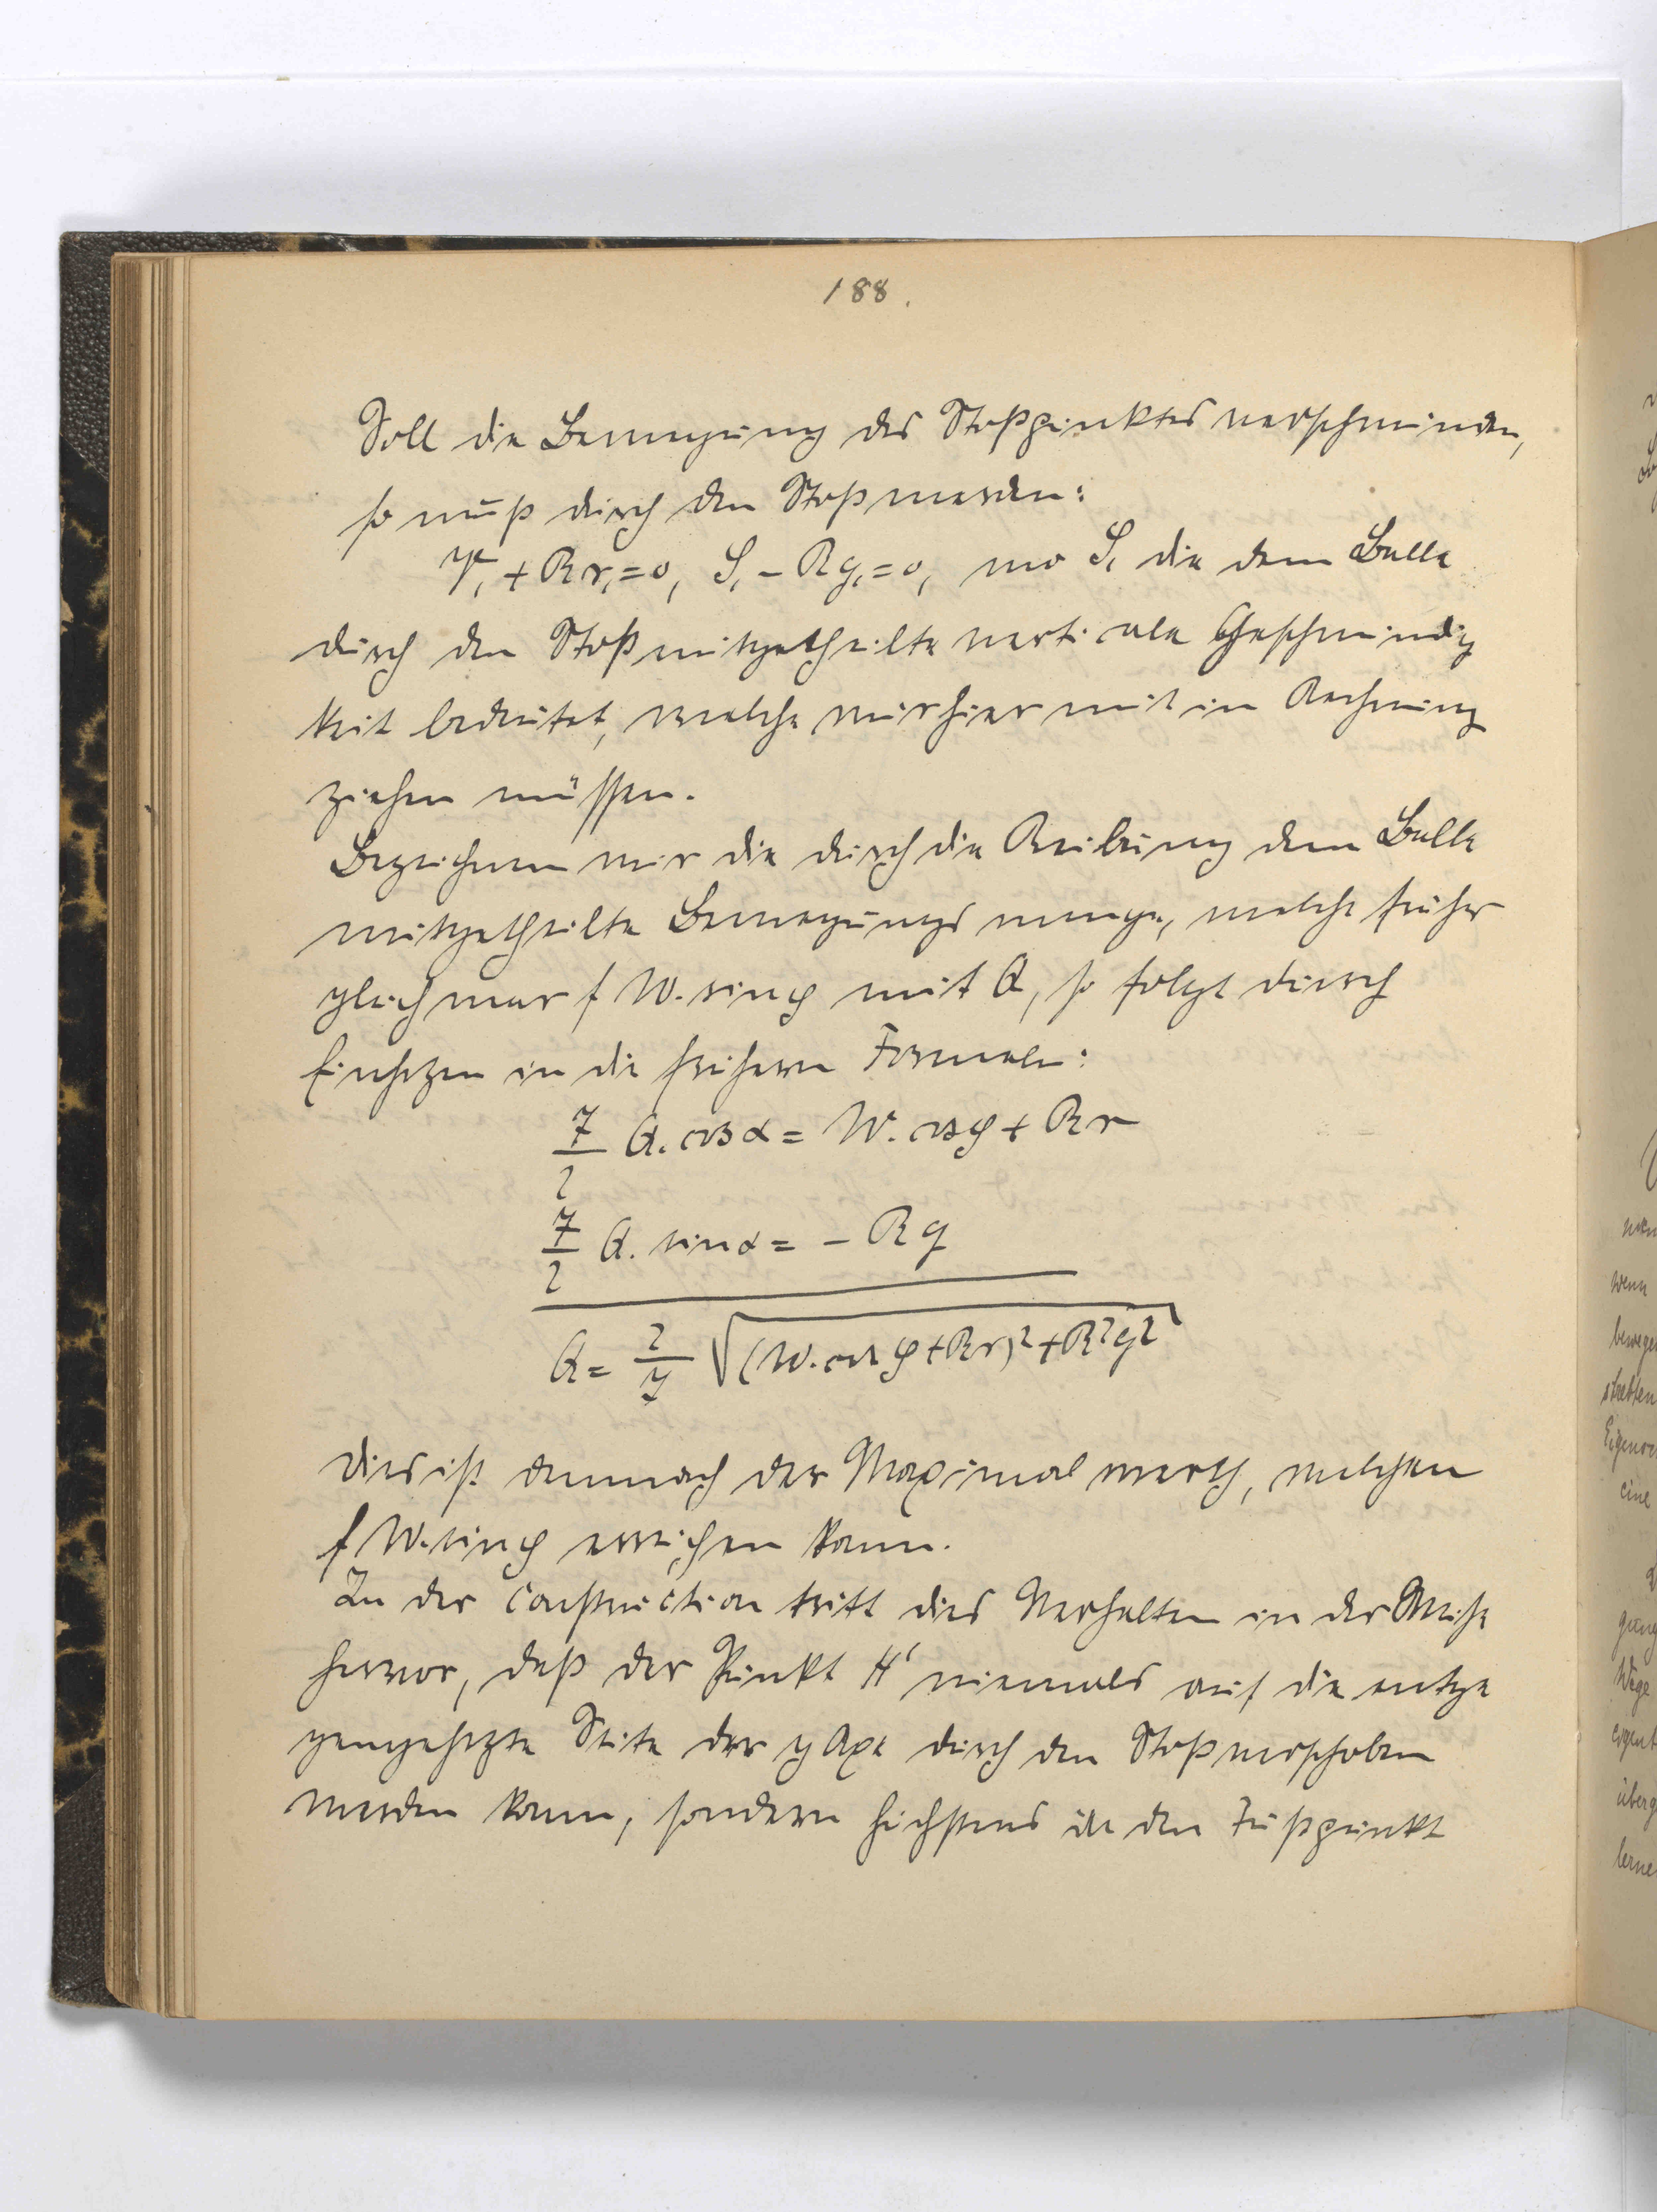 188.
Soll die Bewegung des Stoßpunktes verschwinden,
so muß durch den Stoß werden:
V₁ + Rr₁ = 0, S₁ - Rq₁ = 0, wo S₁ die dem Balle
durch den Stoß mitgetheilte verticale Geschwindig
keit bedeutet, welche wir hier mit in Rechnung
ziehen müssen.
Bezeichnen wir die durch die Reibung dem Balle
mitgetheilte Bewegungsmenge, welche früher
gleich war f W. sin φ mit Q, so folgt durch
Einsetzen in die frühern Formeln:
7/2 Q. cos α = W. cos φ + Rr
7/2 Q. sin α = - Rq
Q = 2/7 √((W. cos φ + Rr)² + R²q²)
Dies ist demnach der Maximalwerth, welchen
f W. sin φ erreichen kann.
In der Construction tritt dies Verhalten in der Weise
hervor, daß der Punkt H' niemals auf die entge
gengesetzte Seite der y Axe durch den Stoß verschoben
werden kann, sondern höchstens in den Fußpunkt
wenn
bewege
streben
Eigenro
eine
gung
Wege
eigent
überg
lerne